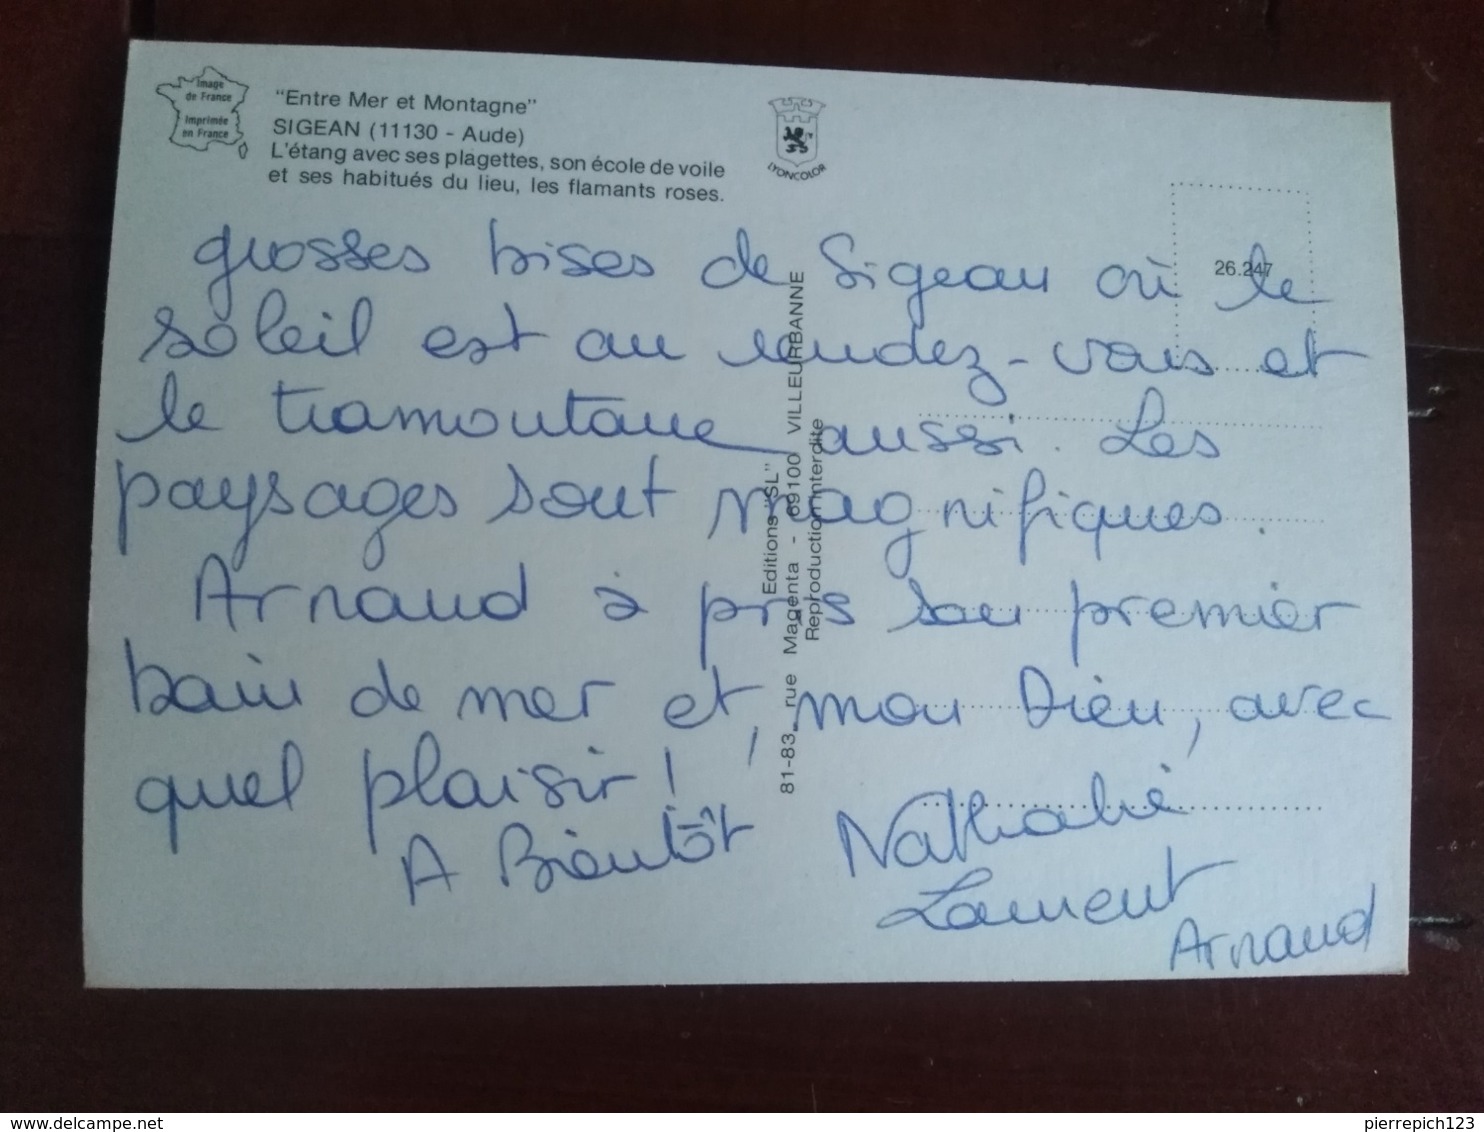 Image
de France
Imprimée
en France
"Entre Mer et Montagne"
SIGEAN (11130 - Aude)
L'étang avec ses plagettes, son école de voile
et ses habitués du lieu, les flamants roses.
LYONCOLOR
26.247
grosses bises de Sigean où le
soleil est au rendez-vous et
le tramontane aussi. Les
paysages sont magnifiques.
Arnaud à pris son premier
bain de mer et, mon Dieu, avec
quel plaisir !
A Bientôt
Nathalie
Laurent
Arnaud
Editions "SL"
81-83, rue Magenta - 69100 VILLEURBANNE
Reproduction interdite
delcampe.net
pierrepich123